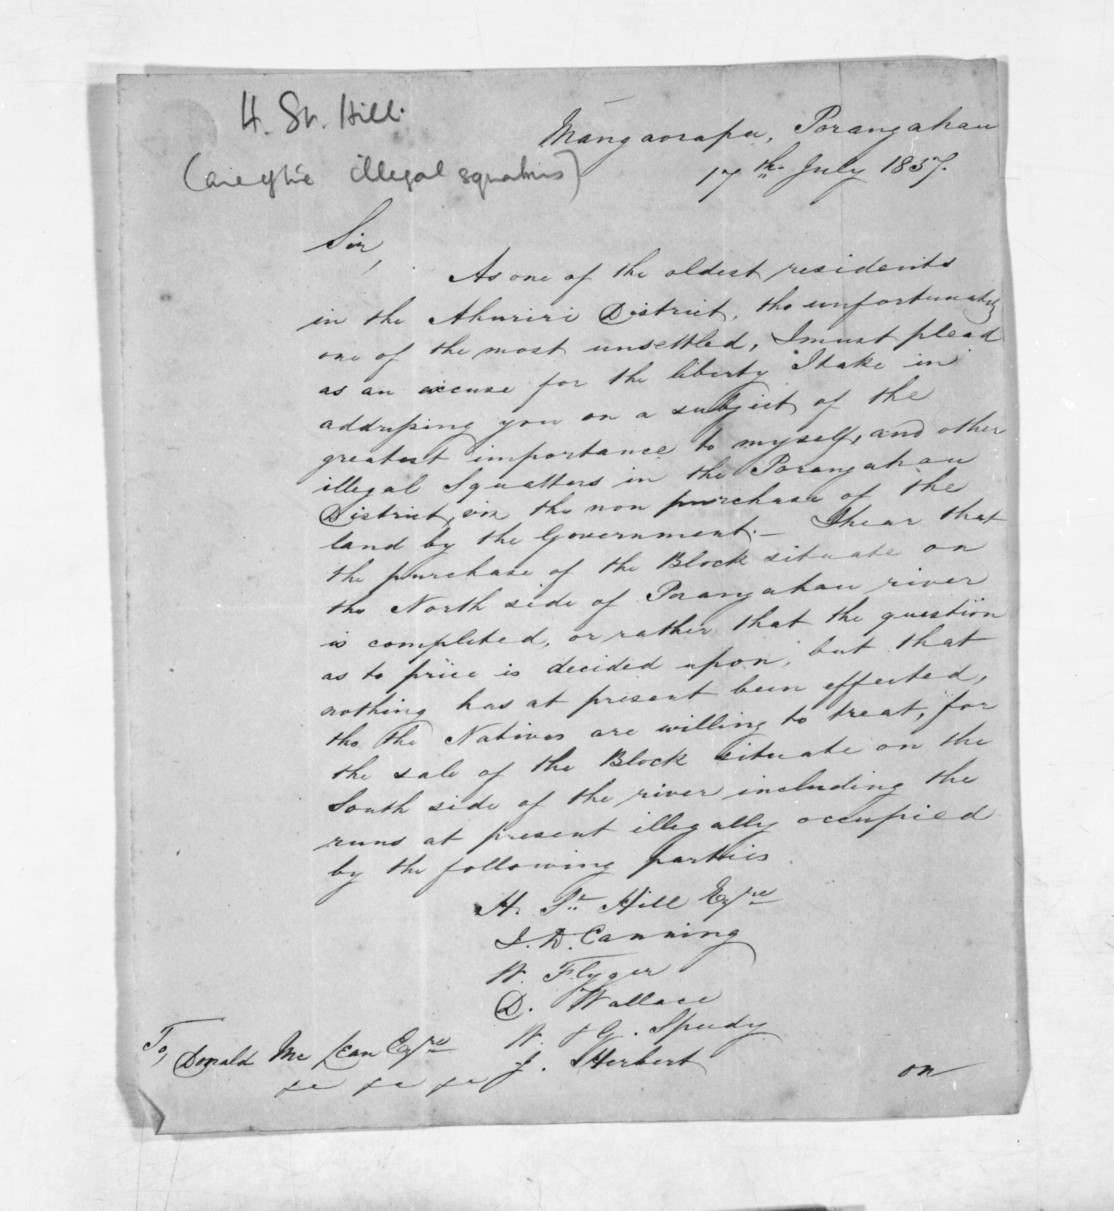 H. St. Hill.
(One of the illegal squatters)
Mangaorapa, Porangahau
17th July 1857.
Sir,
As one of the oldest residents
in the Ahuriri District, tho unfortunately
one of the most unsettled, I must plead
as an excuse for the liberty I take in
addressing you on a subject of the
greatest importance to myself, and other
illegal Squatters in the Porangahau
District, viz the non purchase of the
land by the Government. — I hear that
the purchase of the Block situate on
the North side of Porangahau river
is completed, or rather that the question
as to price is decided upon, but that
nothing has at present been effected,
tho the Natives are willing to treat, for
the sale of the Block situate on the
South side of the river including the
runs at present illegally occupied
by the following parties.
H. St. Hill Esqre
J. D. Canning
W. Flyger
D. Wallace
W. & G. Speedy
J. Herbert
To, Donald McLean Esqre
&c &c &c
on